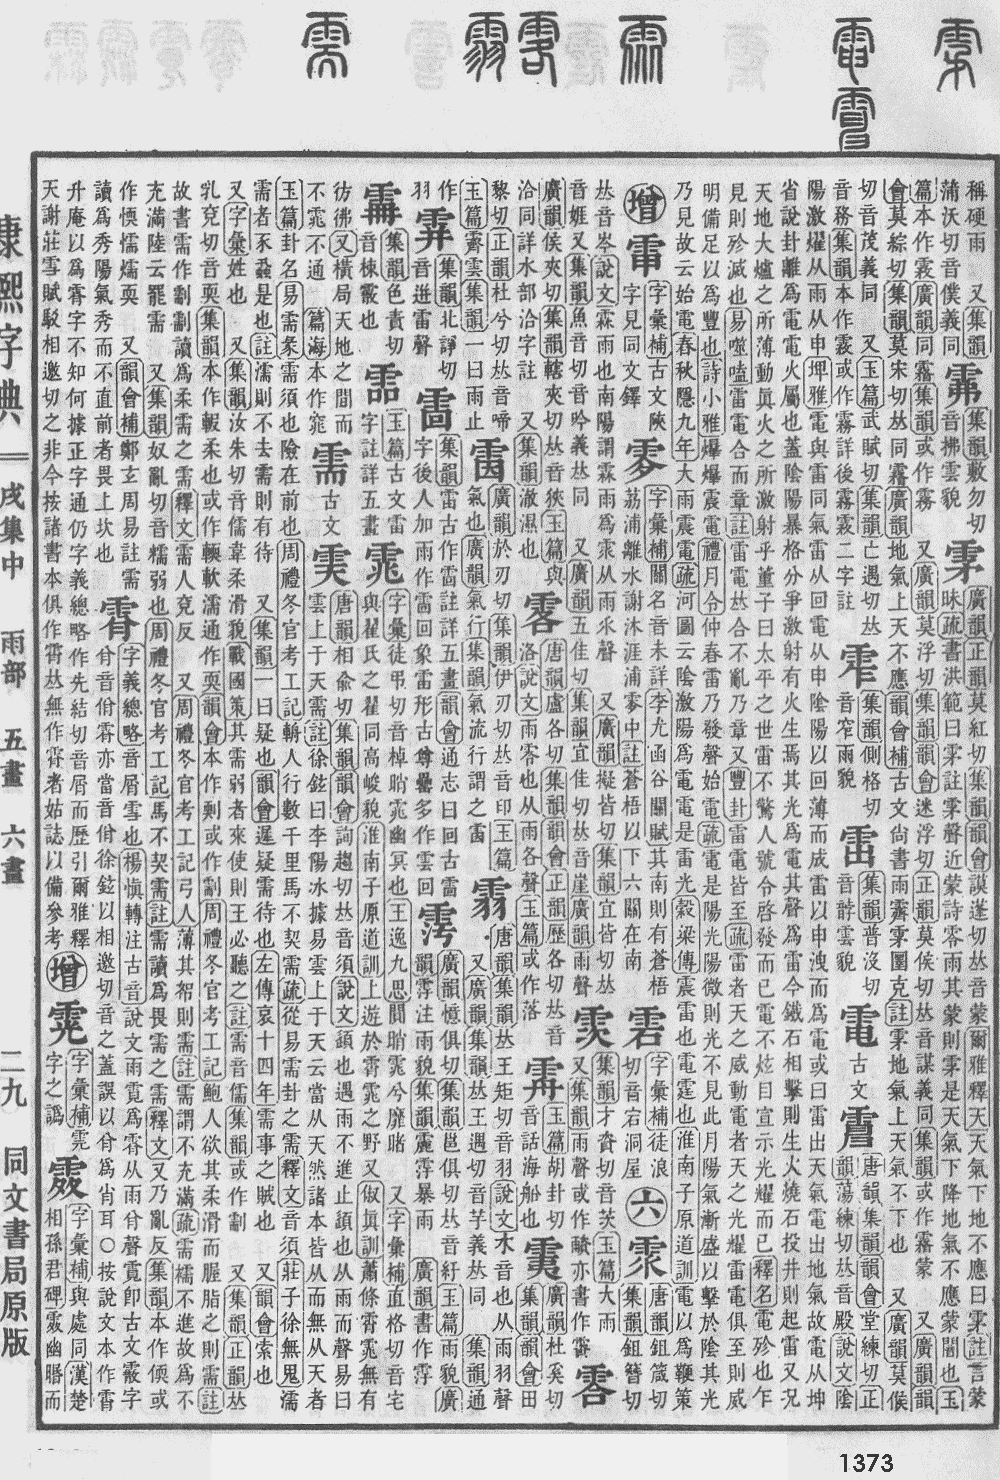 康熙字典 戌集中 雨部 五畫 六畫 二九 同文書局原版
稱硬雨 又集韻
蒲沃切音僕義同
集韻敷勿切
音拂雲貌
雺
廣韻正韻莫紅切集韻韻會謨蓬切𠀤音蒙爾雅釋天天氣下地不應曰雺註言蒙
昧疏書洪範曰雺註雺聲近蒙詩零雨其蒙則雺是天氣下降地氣不應蒙闇也玉
篇本作霚廣韻同霧集韻或作霿 又廣韻莫浮切集韻韻會迷浮切正韻莫侯切𠀤音謀義同集韻或作霿蒙 又廣韻
會莫綜切集韻莫宋切𠀤同霿廣韻地氣上天不應韻會補古文尙書雨霽雺圛克註雺地氣上天氣不下也 又廣韻莫候
切音茂義同 又玉篇武賦切集韻亡遇切𠀤
音務集韻本作霚或作霧詳後霧霚二字註
集韻側格切
音窄雨貌
集韻普沒切
音㖕雲貌
電
古文
𩃓
唐韻集韻韻會堂練切正
韻蕩練切𠀤音殿說文陰
陽激燿从雨从申埤雅電與雷同氣雷从回電从申陰陽以回薄而成雷以申洩而爲電或曰雷出天氣電出地氣故電从坤
省說卦離爲電電火屬也蓋陰陽暴格分爭激射有火生焉其光爲電其聲爲雷今鐵石相擊則生火燒石投井則起雷又況
天地大爐之所薄動眞火之所激射乎董子曰太平之世雷不驚人號令啓發而已電不炫目宣示光耀而已釋名電殄也乍
見則殄滅也易噬嗑雷電合而章註雷電𠀤合不亂乃章又豐卦雷電皆至疏雷者天之威動電者天之光耀雷電俱至則威
明備足以爲豐也詩小雅爆爆震電禮月令仲春雷乃發聲始電疏電是陽光陽微則光不見此月陽氣漸盛以擊於陰其光
乃見故云始電春秋隱九年大雨震電疏河圖云陰激陽爲電電是雷光穀梁傳震雷也電霆也淮南子原道訓電以爲鞭策
增
字彙補古文陝
字見同文鐸
雺
字彙補關名音未詳李尤函谷關賦其南則有蒼梧
荔浦離水謝沐涯浦雺中註蒼梧以下六關在南
𩂜
字彙補徒浪
切音宕洞屋
六
唐韻鉏箴切
集韻鉏簪切
𠀤音岑說文霖雨也南陽謂霖雨爲𩂣从雨𠈌聲 又廣韻擬皆切集韻宜皆切𠀤
音娾又集韻魚音切音吟義𠀤同 又廣韻五佳切集韻宜佳切𠀤音崖廣韻雨聲
集韻才資切音茨玉篇大雨
又集韻雨聲或作𩆂亦書作䨏
雸
廣韻侯夾切集韻轄夾切𠀤音狹玉篇與
洽同詳水部洽字註 又集韻激濕也
零
唐韻盧各切集韻韻會正韻歷各切𠀤音
洛說文雨零也从雨各聲玉篇或作落
玉篇胡卦切
音話海船也
廣韻杜奚切
集韻韻會田
黎切正韻杜兮切𠀤音啼
玉篇霽雲集韻一曰雨止
廣韻於刃切集韻伊刃切𠀤音印玉篇
氣也廣韻氣行集韻氣流行謂之𩂢
𩁶
唐韻集韻𠀤王矩切音羽說文水音也从雨羽聲
又廣韻集韻𠀤王遇切音芋義𠀤同 集韻通
作
羽
集韻北諍切
音迸雷聲
集韻雷古作𤳳註詳五畫韻會通志曰回古雷
字後人加雨作𩂩回象雷形古尊罍多作雲回
雩
廣韻憶俱切集韻邕俱切𠀤音紆玉篇雨貌廣
韻雩注雨貌集韻䨠雩暴雨 廣韻書作雩
集韻色責切
音棟霰也
玉篇古文雷
字註詳五畫
䨦
字彙徒弔切音棹䀩䨦幽冥也王逸九思閒䀩䨦兮靡睹 又字彙補直格切音宅
與翟氏之翟同高峻貌淮南子原道訓上遊於霄䨦之野又俶眞訓蕭條霄䨦無有
彷彿又橫局天地之閒而
不䨦不通 篇海本作窕
需
古文
𩂉
唐韻相兪切集韻韻會詢趨切𠀤音須說文䇓也遇雨不進止䇓也从雨而聲易曰
雲上于天需註徐鉉曰李陽冰據易雲上于天云當从天然諸本皆从而無从天者
玉篇卦名易需彖需須也險在前也周禮冬官考工記輈人行數千里馬不契需疏從易需卦之需釋文音須莊子徐無鬼濡
需者豕蝨是也註濡則不去需則有待 又集韻一曰疑也韻會遲疑需待也左傳哀十四年需事之賊也 又韻會索也
又字彙姓也 又集韻汝朱切音儒韋柔滑貌戰國策其需弱者來使則王必聽之註需音儒集韻或作劀 又集韻正韻𠀤
乳兗切音耎集韻本作䎡柔也或作輭軟濡通作耎韻會本作剰或作劀周禮冬官考工記鮑人欲其柔滑而腥脂之則需註
故書需作劀劀讀爲柔需之需釋文需人兗反 又周禮冬官考工記弓人薄其帤則需註需謂不充滿疏需襦不進故爲不
充滿陸云罷需 又集韻奴亂切音糯弱也周禮冬官考工記馬不契需註需讀爲畏需之需釋文又乃亂反集韻本作偄或
作愞懦㬉耎 又韻會補鄭玄周易註需
讀爲秀陽氣秀而不直前者畏上坎也
䨭
字義總略音屑雪也楊愼轉注古音說文雨霓爲霄从雨肖聲霓卽古文霰字
肖音佾霄亦當音佾徐鉉以相邀切音之蓋誤以肖爲肖耳〇按說文本作霄
升庵以爲霄字不知何據正字通仍字義總略作先結切音屑而歷引爾雅釋
天謝莊雪賦駁相邀切之非今按諸書本俱作霄𠀤無作䨭者姑誌以備參考
增
字彙補䨦
字之譌
字彙補與處同漢楚
相孫君碑䨛幽䁥而
1373